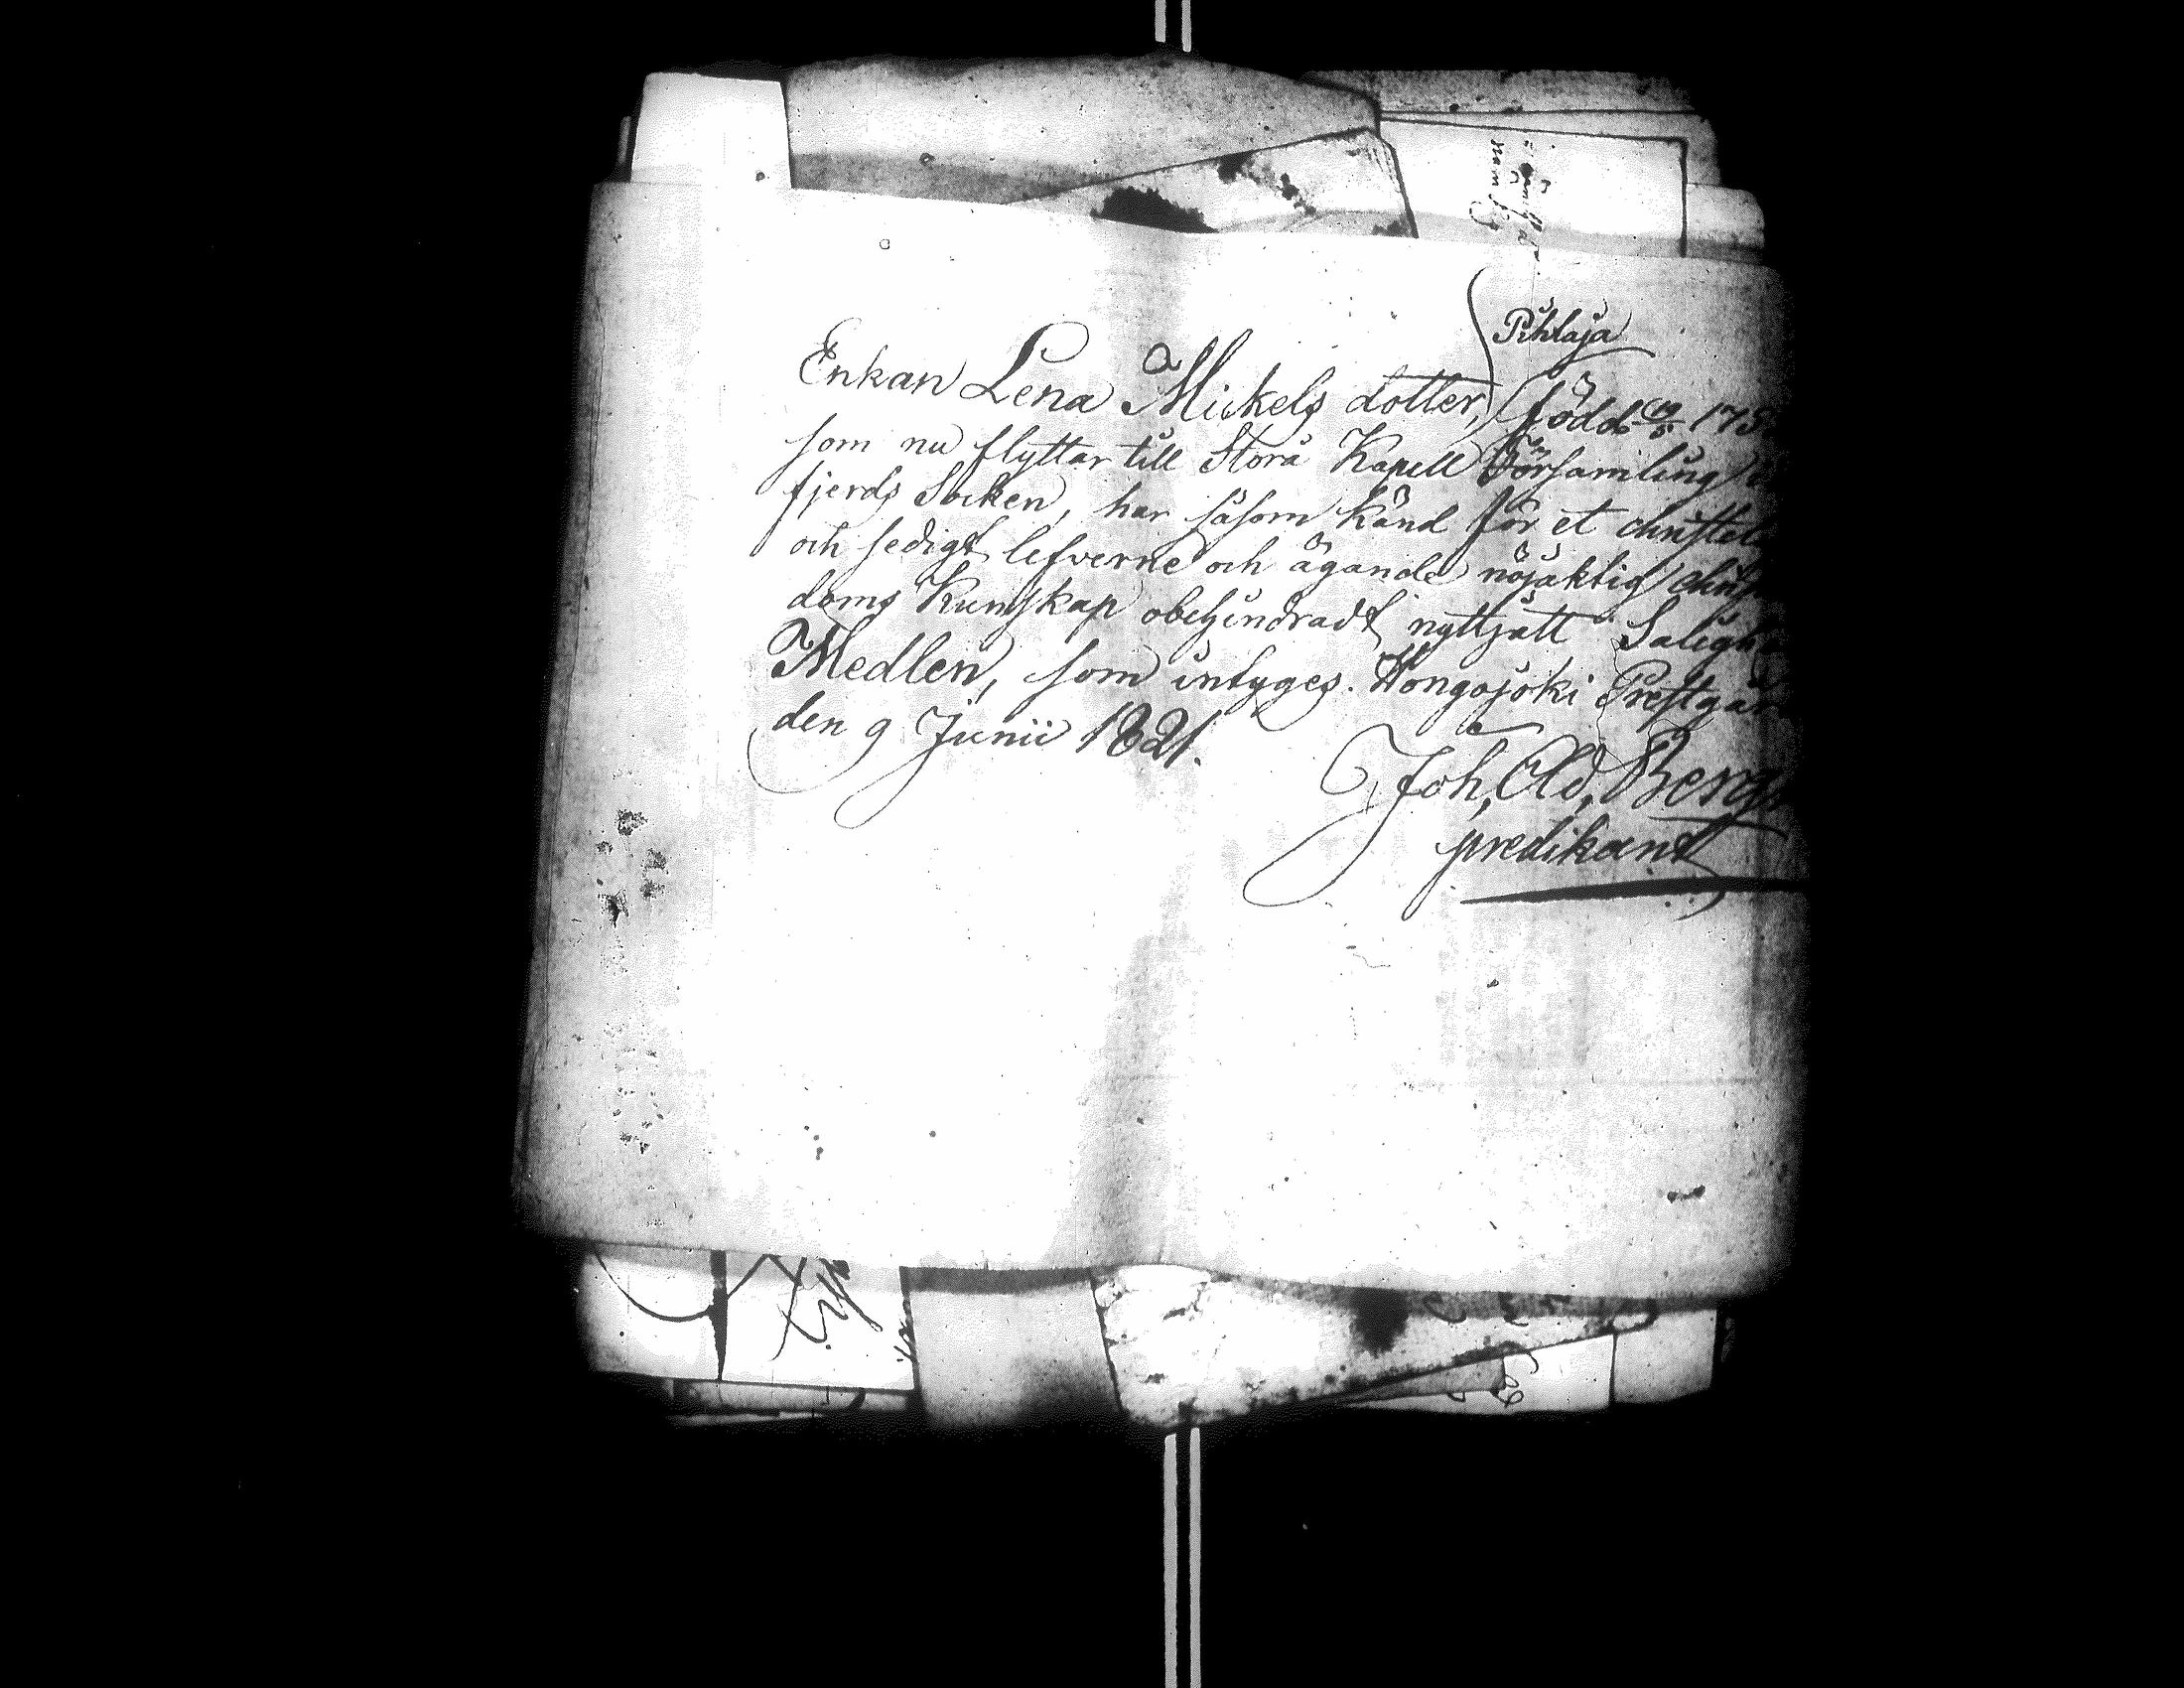 Pihlaja
Enkan Lena Mickels dotter, född 19/5 175
som nu flyttar till Storå Kapell Församling
fjerds Socken, har såsom känd för et christel
och sedigt lefverne och ägande nöjaktig christen
doms Kunskap obehindradt nyttjatt Saligh
Medlen, som intyges. Hongojoki Prestgår
den 9 Junii 1821.
Joh, Ad, Berg
predikant